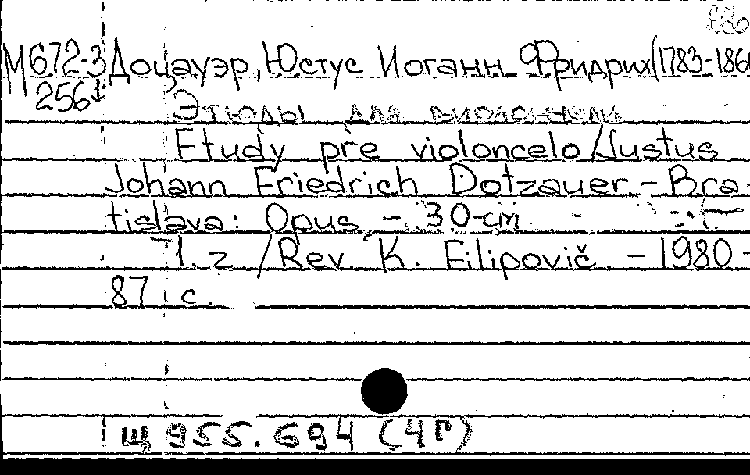 М672-3 Доцауэр, Юстус Иоганн Фридрих (1783-186
256
Этюды для виолончели
Etudy pře violoncelo / Justus
Johann Friedrich Dotzauer - Bra-
tislava: Opus - 30 cm
1. z / Rev. K. Filipovič. - 1980 -
87 с.
Щ 955.694 (4Г)